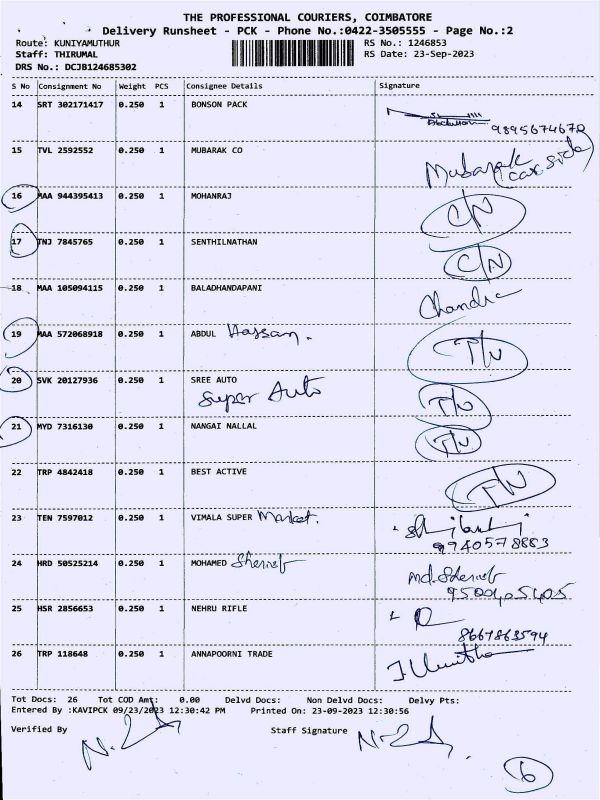 THE PROFESSIONAL COURIERS, COIMBATORE
Delivery Runsheet - PCK - Phone No.:0422-3505555 - Page No.:2
Route: KUNIYAMUTHUR RS No.: 1246853
Staff: THIRUMAL RS Date: 23-Sep-2023
DRS No.: DCJB124685302
S No Consignment No Weight PCS Consignee Details Signature
14 SRT 302171417 0.250 1 BONSON PACK
9895674670
15 TVL 2592552 0.250 1 MUBARAK CO Mubarak
(car side)
16 MAA 944395413 0.250 1 MOHANRAJ C/N
17 TNJ 7845765 0.250 1 SENTHILNATHAN C/N
18 MAA 105094115 0.250 1 BALADHANDAPANI Chandra
19 MAA 572068918 0.250 1 ABDUL Hassan. T/N
20 SVK 20127936 0.250 1 SREE AUTO T/N
Super Auto
21 MYD 7316130 0.250 1 NANGAI NALLAL T/N
22 TRP 4842418 0.250 1 BEST ACTIVE T/N
23 TEN 7597012 0.250 1 VIMALA SUPER Market.
9940578883
24 HRD 50525214 0.250 1 MOHAMED Sherieb Md. Sherieb
9500405405
25 HSR 2856653 0.250 1 NEHRU RIFLE
8667863594
26 TRP 118648 0.250 1 ANNAPOORNI TRADE
Tot Docs: 26 Tot COD Amt: 0.00 Delvd Docs: Non Delvd Docs: Delvy Pts:
Entered By :KAVIPCK 09/23/2023 12:30:42 PM Printed On: 23-09-2023 12:30:56
Verified By Staff Signature
6